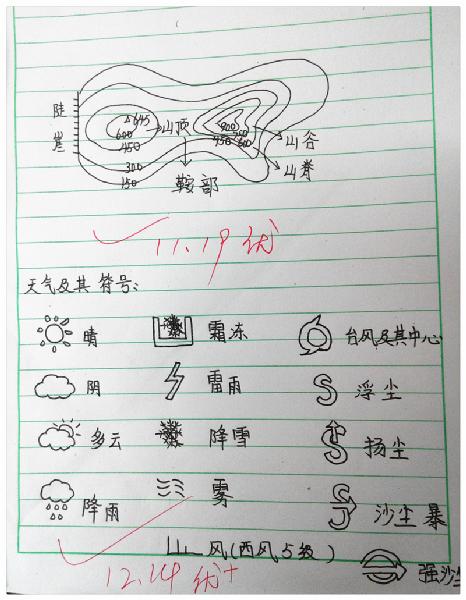 陡崖
645
600
450
300
150
山顶
900
750
600
450
山谷
山脊
鞍部
11.19 优
天气及其符号:
晴 霜冻 台风及其中心
阴 雷雨 浮尘
多云 降雪 扬尘
降雨 雾 沙尘暴
风(西风5级)
12.14 优+
强沙